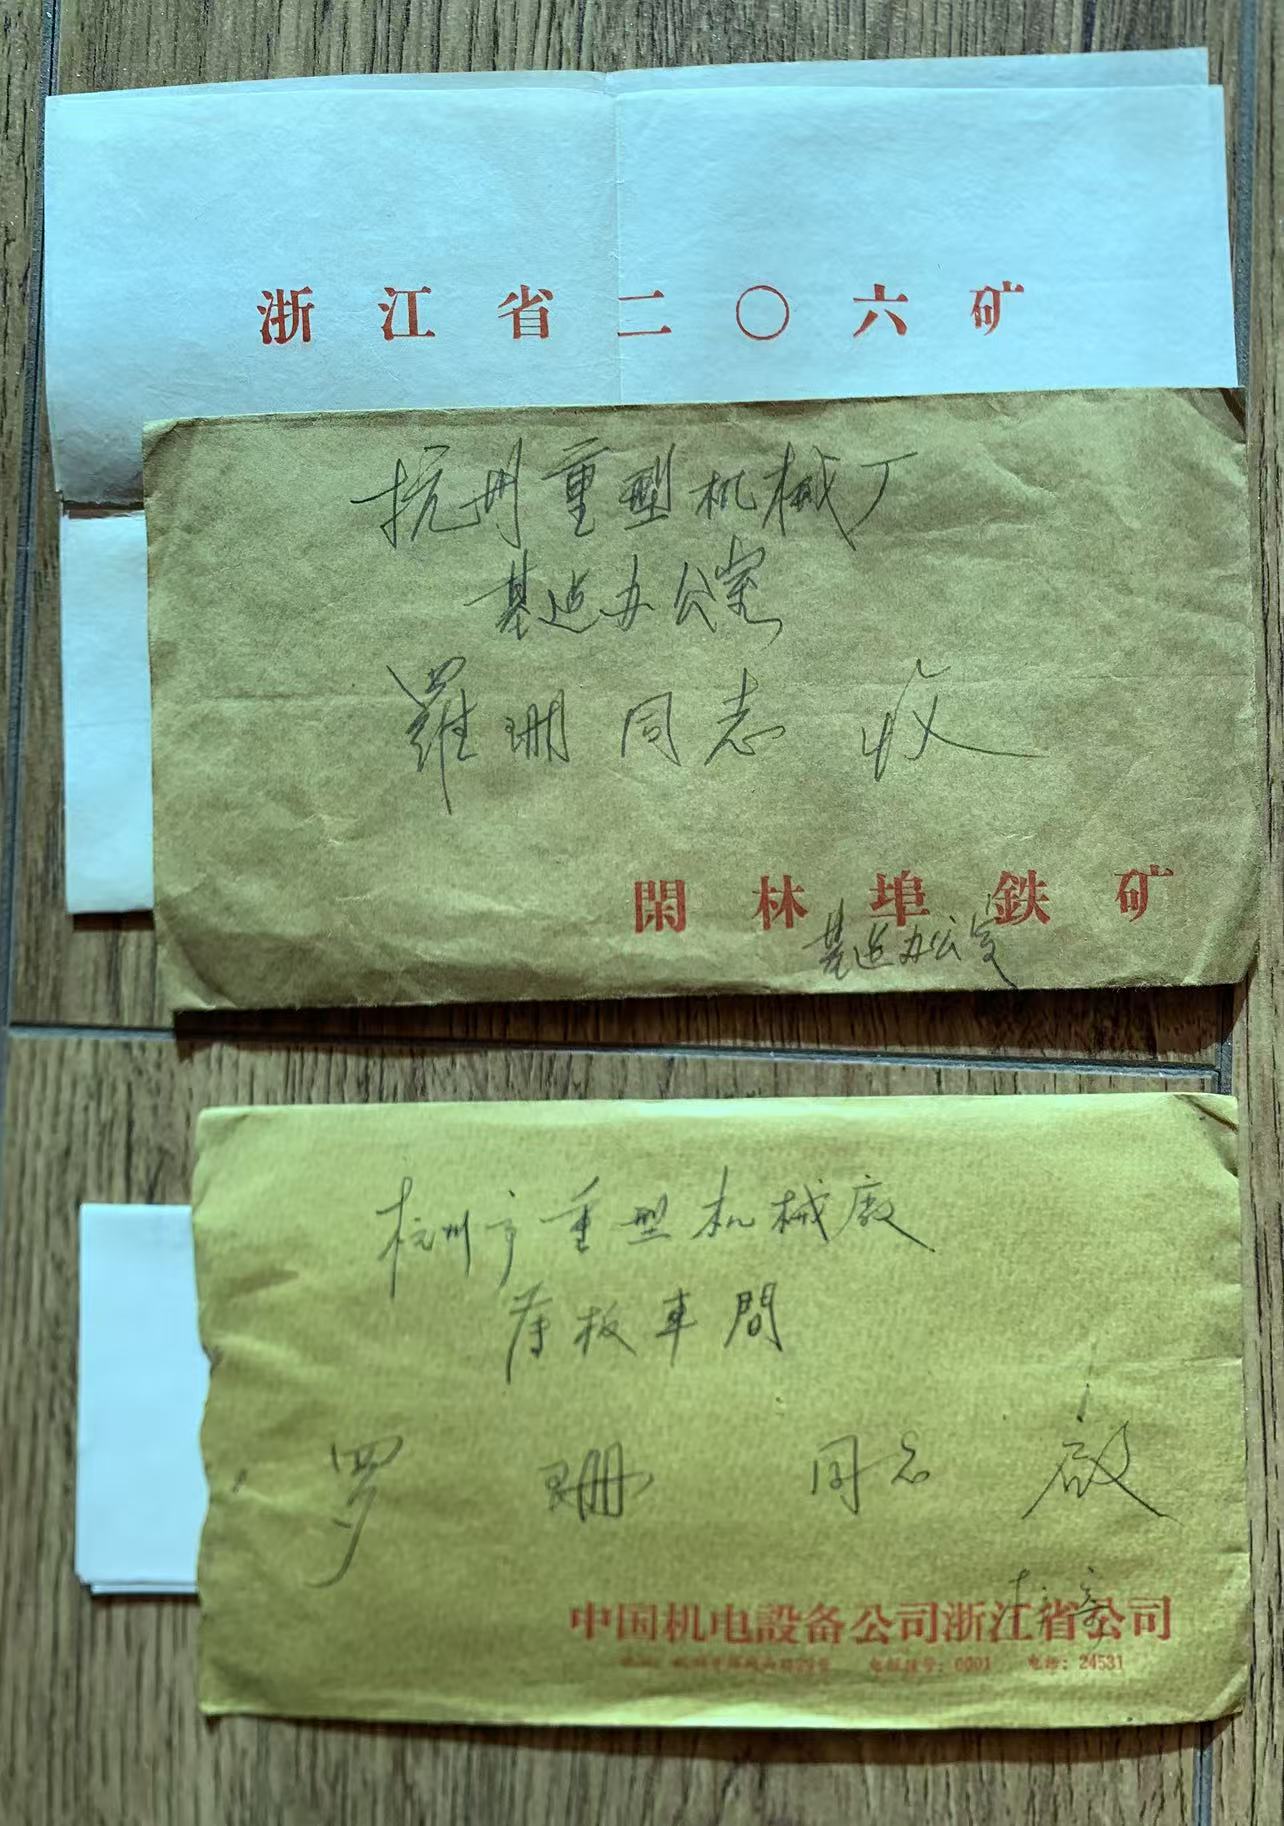 浙江省二〇六矿
杭州重型机械厂
基建办公室
羅珊同志 收
閑林埠鉄矿
基建办公室
杭州市重型机械廠
厚板車間
罗珊同志 啟
中国机电設备公司浙江省公司
电报挂号：0001 电话：24531